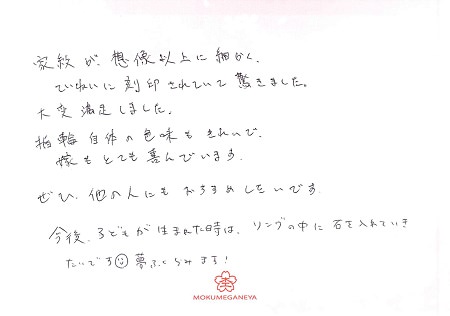 家紋が、想像以上に細かく、
ていねいに刻印されていて驚きました。
大変満足しました。
指輪自体の色味もきれいで、
嫁もとても喜んでいます。
ぜひ、他の人にもおすすめしたいです。
今後、子どもが生まれた時は、リングの中に石を入れていき
たいです☺夢ふくらみます！
MOKUMEGANEYA